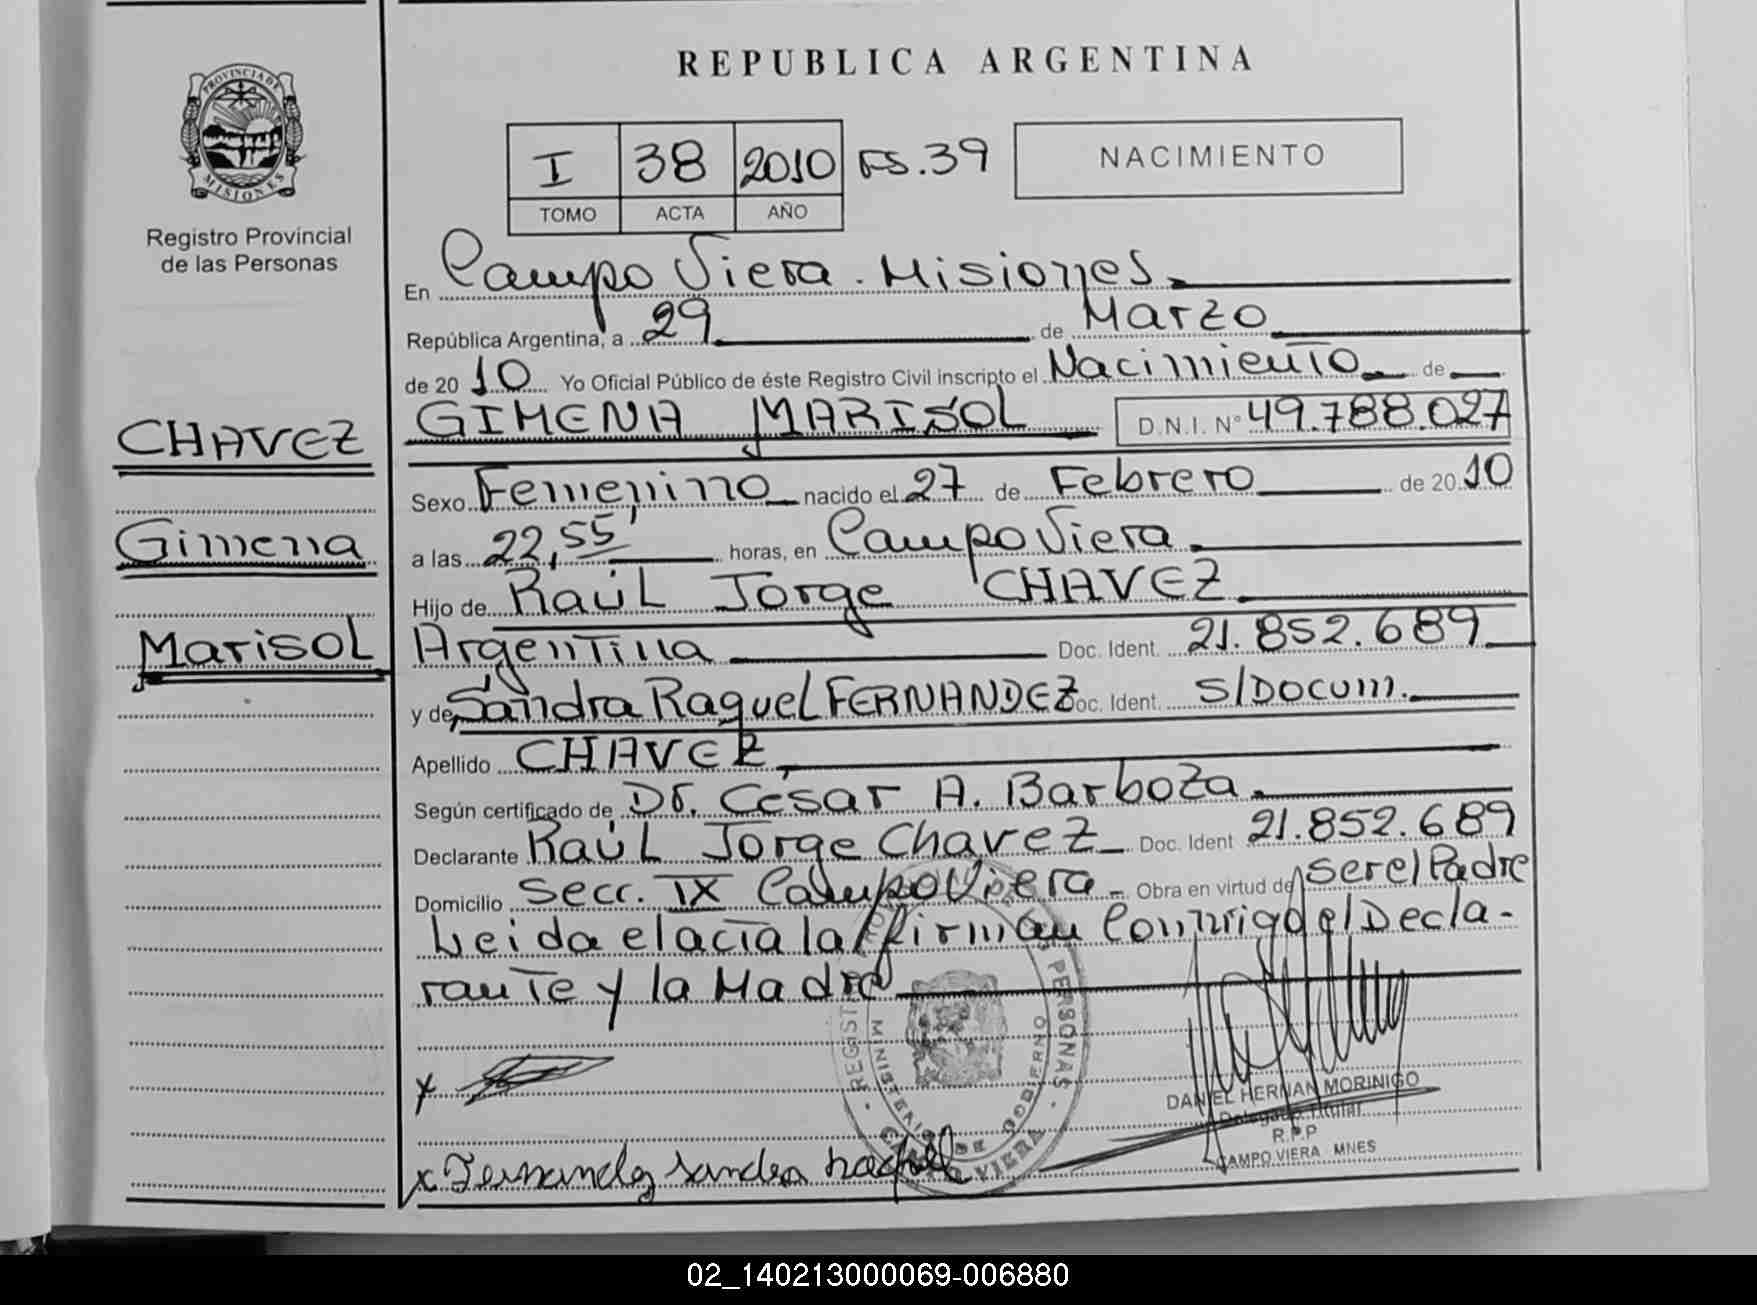 REPUBLICA ARGENTINA
PROVINCIA DE MISIONES
Registro Provincial
de las Personas
I 38 2010 FS.39
TOMO ACTA AÑO
NACIMIENTO
En Campo Viera. Misiones
República Argentina, a 29 de Marzo
de 2010 Yo Oficial Público de éste Registro Civil inscripto el Nacimiento de
GIMENA MARISOL D.N.I. N° 49.788.027
CHAVEZ
Gimena
Marisol
Sexo Femenino nacido el 27 de Febrero de 2010
a las 22,55' horas, en Campo Viera
Hijo de Raúl Jorge CHAVEZ
Argentina Doc. Ident. 21.852.689
y de Sandra Raquel FERNANDEZ Doc. Ident. S/DOCUM.
Apellido CHAVEZ,
Según certificado de Dr. Cesar A. Barboza
Declarante Raúl Jorge Chavez Doc. Ident 21.852.689
Domicilio Secc. IX Campo Viera Obra en virtud de ser el Padre
Leida el acta la firman Conmigo el Decla-
rante y la Madre
x
x Fernandez sandra raquel
REGISTRO PERSONAS
MINISTERIO DE GOBIERNO
CAMPO VIERA
DANIEL HERNAN MORINIGO
Delegado Titular
R.P.P
CAMPO VIERA MNES
02_140213000069-006880